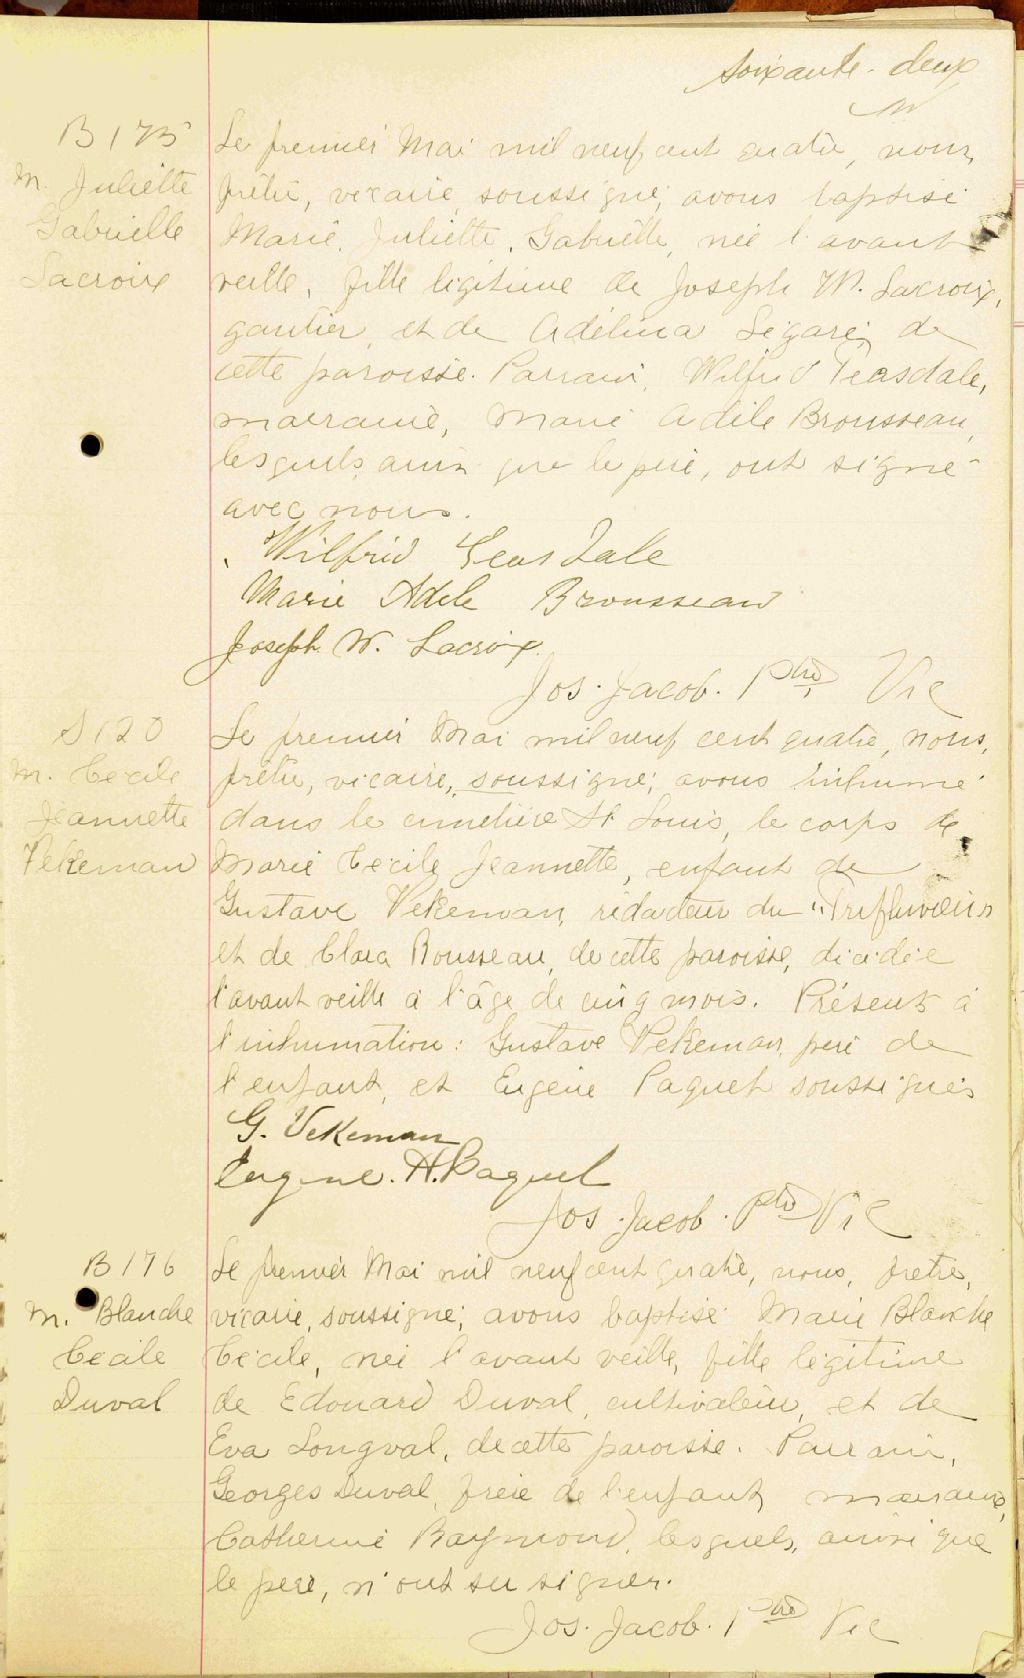 soixante-deux
B 175
M. Juliette
Gabrielle
Lacroix
Le premier Mai mil neuf cent quatre, nous,
prêtre, vicaire, soussigné, avons baptisé
Marie, Juliette, Gabrielle, née l'avant
veille, fille légitime de Joseph W. Lacroix,
gantier, et de Adélina Légaré, de
cette paroisse. Parrain, Wilfrid Teasdale,
marraine, Marie Adèle Brousseau,
lesquels ainsi que le père, ont signé
avec nous.
Wilfrid Teasdale
Marie Adele Brousseau
Joseph W. Lacroix
Jos. Jacob. Ptre Vic
S 120
M. Cécile
Jeannette
Vekeman
Le premier Mai mil neuf cent quatre, nous,
prêtre, vicaire, soussigné, avons inhumé
dans le cimetière St Louis, le corps de
Marie Cécile Jeannette, enfant de
Gustave Vekeman, rédacteur du "Trifluvien"
et de Clara Rousseau, de cette paroisse, décédée
l'avant veille à l'âge de cinq mois. Présents à
l'inhumation: Gustave Vekeman, père de
l'enfant, et Eugène Paquet soussignés
G. Vekeman
Eugene. H. Paquet
Jos. Jacob. Ptre Vic
B 176
M. Blanche
Cécile
Duval
Le premier Mai mil neuf cent quatre, nous, prêtre,
vicaire, soussigné, avons baptisé Marie Blanche
Cécile, née l'avant veille, fille légitime
de Edouard Duval, cultivateur, et de
Eva Longval, de cette paroisse. Parrain,
Georges Duval, frère de l'enfant, marraine,
Catherine Raymond, lesquels, ainsi que
le père, n'ont su signer.
Jos. Jacob. Ptre Vic